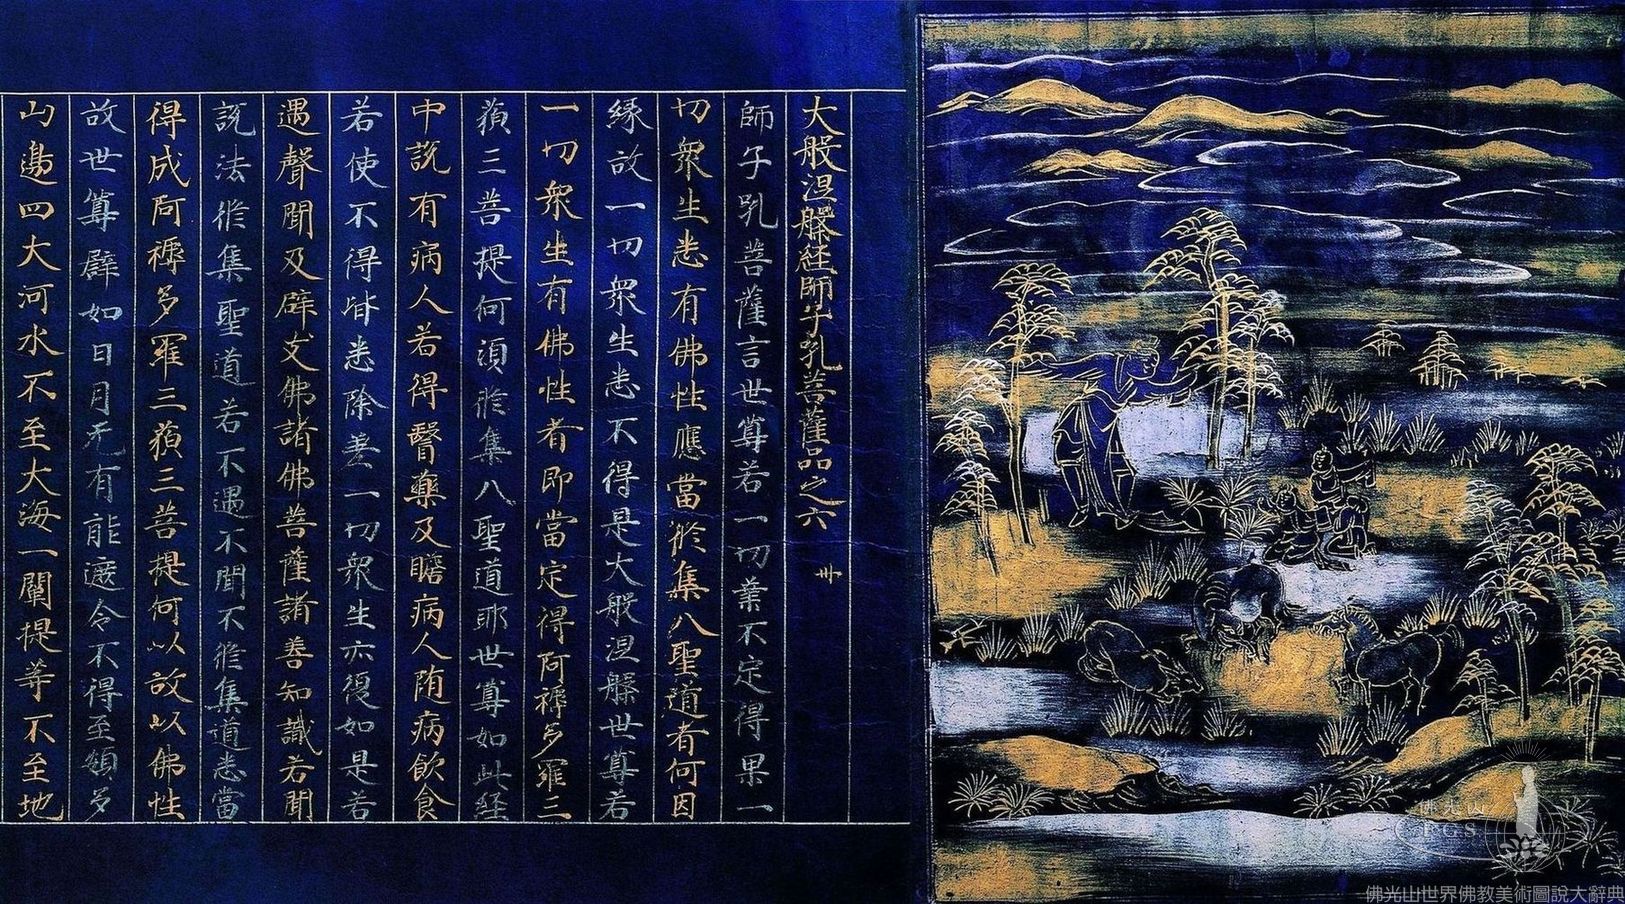 大般涅槃經師子吼菩薩品之六 卅
師子吼菩薩言世尊若一切業不定得果一
切衆生悉有佛性應當修集八聖道者何因
緣故一切衆生悉不得是大般涅槃世尊若
一切衆生有佛性者即當定得阿耨多羅三
藐三菩提何須修集八聖道耶世尊如此經
中說有病人若得醫藥及瞻病人随病飲食
若使不得皆悉除差一切衆生亦復如是若
遇聲聞及辟支佛諸佛菩薩諸善知識若聞
說法修集聖道若不遇不聞不修集道悉當
得成阿耨多羅三藐三菩提何以故以佛性
故世尊辟如日月无有能遮令不得至頞多
山邊四大河水不至大海一闡提等不至地
佛光山
F.G.S.
佛光山世界佛教美術圖說大辭典